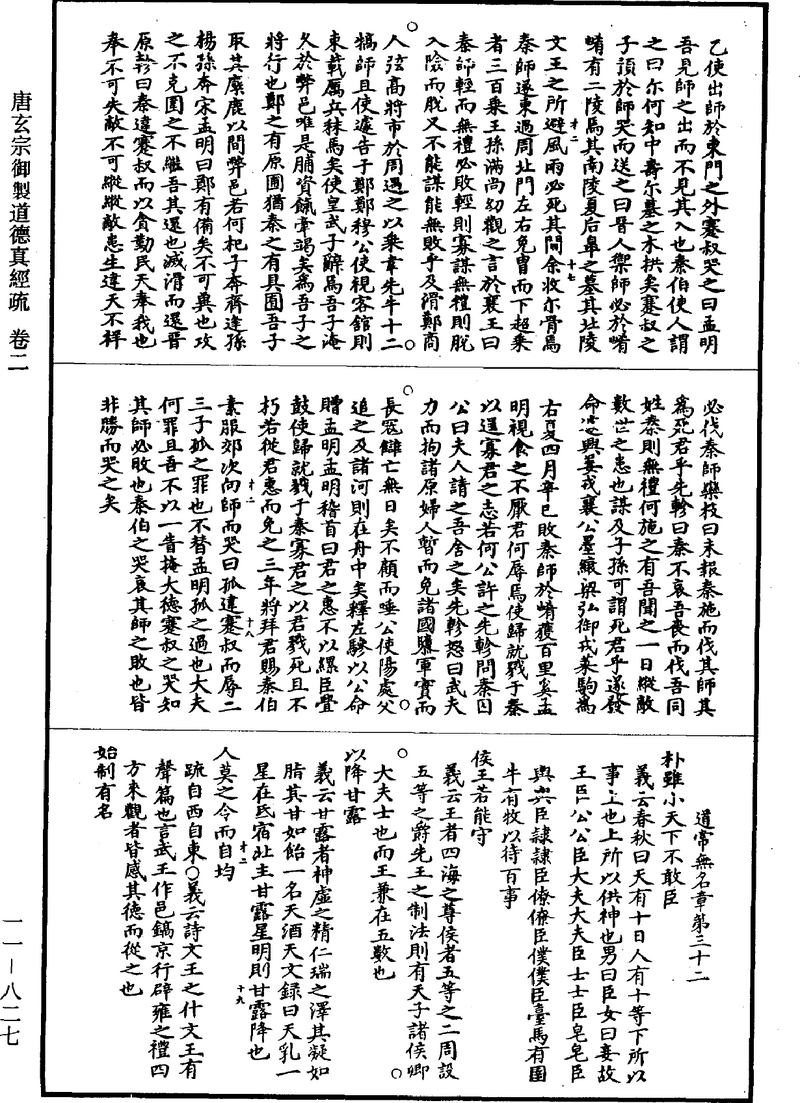 乙使出師於東門之外蹇叔哭之曰孟明
吾見師之出而不見其入也秦伯使人謂
之曰尒何知中壽尒墓之木拱矣蹇叔之
子預於師哭而送之曰晉人禦師必於崤
崤有二陵焉其南陵夏后臯之墓其北陵
文王之所避風雨必死其間余收尒骨焉
秦師遂東過周北門左右免冑而下超乗
者三百乗王孫滿尚幼觀之言於襄王曰
秦師輕而無禮必敗輕則寡謀無禮則脱
入險而脱又不能謀能無敗乎及滑鄭商
人弦高將市於周遇之以乗韋先牛十二
犒師且使遽告于鄭鄭穆公使視客館則
束載厲兵秣馬矣使皇武子辭焉吾子淹
久於弊邑唯是脯資餼牽竭矣為吾子之
將行也鄭之有原圃猶秦之有具囿吾子
取其麋鹿以間弊邑若何杞子奔齊逢孫
楊孫奔宋孟明曰鄭有備矣不可兾也攻
之不克圍之不繼吾其還也滅滑而還晉
原軫曰秦違蹇叔而以貪勤民天奉我也
奉不可失敵不可縱縱敵患生違天不祥
必伐秦師欒枝曰未報秦施而伐其師其
為死君乎先軫曰秦不哀吾喪而伐吾同
姓秦則無禮何施之有吾聞之一日縱敵
數世之患也謀及子孫可謂死君乎遂發
命遽興姜戎襄公墨縗梁弘御戎萊駒為
右夏四月辛巳敗秦師於崤獲百里奚孟
明視食之不厭君何辱焉使歸就戮于秦
以逞寡君之志若何公許之先軫問秦囚
公曰夫人請之吾舍之矣先軫怒曰武夫
力而拘諸原婦人暫而免諸國墮軍實而
長寇讎亡無日矣不顧而唾公使陽處父
追之及諸河則在舟中矣釋左驂以公命
贈孟明孟明稽首曰君之惠不以纍臣舋
鼓使歸就戮于秦寡君之以君戮死且不
朽若從君惠而免之三年將拜君賜秦伯
素服郊次向師而哭曰孤違蹇叔而辱二
三子孤之罪也不替孟明孤之過也大夫
何罪且吾不以一眚掩大德蹇叔之哭知
其師必敗也秦伯之哭哀其師之敗也皆
非勝而哭之矣
道常無名章第三十二
朴雖小天下不敢臣
義云春秋曰天有十日人有十等下所以
事上也上所以供神也男曰臣女曰妾故
王臣公公臣大夫大夫臣士士臣皂皂臣
輿輿臣隸隸臣僚僚臣僕僕臣臺馬有圉
牛有牧以待百事
侯王若能守
義云王者四海之尊侯者五等之二周設
五等之爵先王之制法則有天子諸侯卿
大夫士也而王兼在五數也
以降甘露
義云甘露者神虛之精仁瑞之澤其凝如
脂其甘如飴一名天酒天文録曰天乳一
星在氐宿北主甘露星明則甘露降也
人莫之令而自均
疏自西自東○義云詩文王之什文王有
聲篇也言武王作邑鎬京行辟雍之禮四
方來觀者皆感其德而從之也
始制有名
唐玄宗御製道德真經疏 卷二
一一—八二七
才二
十七
才二
十八
才二
十九